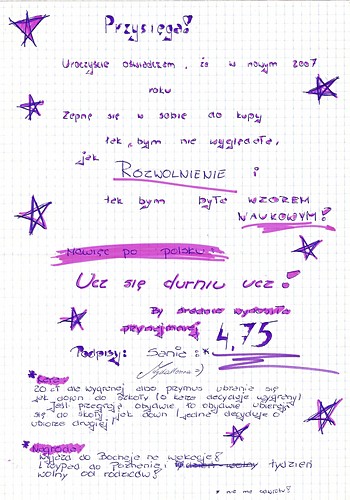 Przysięga!
Uroczyście oświadczam, że w nowym 2007
roku
Zepnę się w sobie do kupy
tak bym nie wyglądała,
jak
ROZWOLNIENIE i
tak bym była WZOREM
NAUKOWYM!
Mówiąc po polsku:
Ucz się durniu ucz!
By średnia wynosiła
przynajmniej 4,75
Podpisy: Sanie: *
* Kara:
20 zł dla wygranej albo przymus ubrania się
jak down do szkoły (o karze decyduje wygrany)
Jeśli przegrają obydwie, to obydwie ubierają
się do szkoły jak down (jedna decyduje o
ubiorze drugiej)
* Nagroda:
Wyjazd do Bochni na wakacje!
i wypad do Poznania i tydzień
wolny od rodziców!